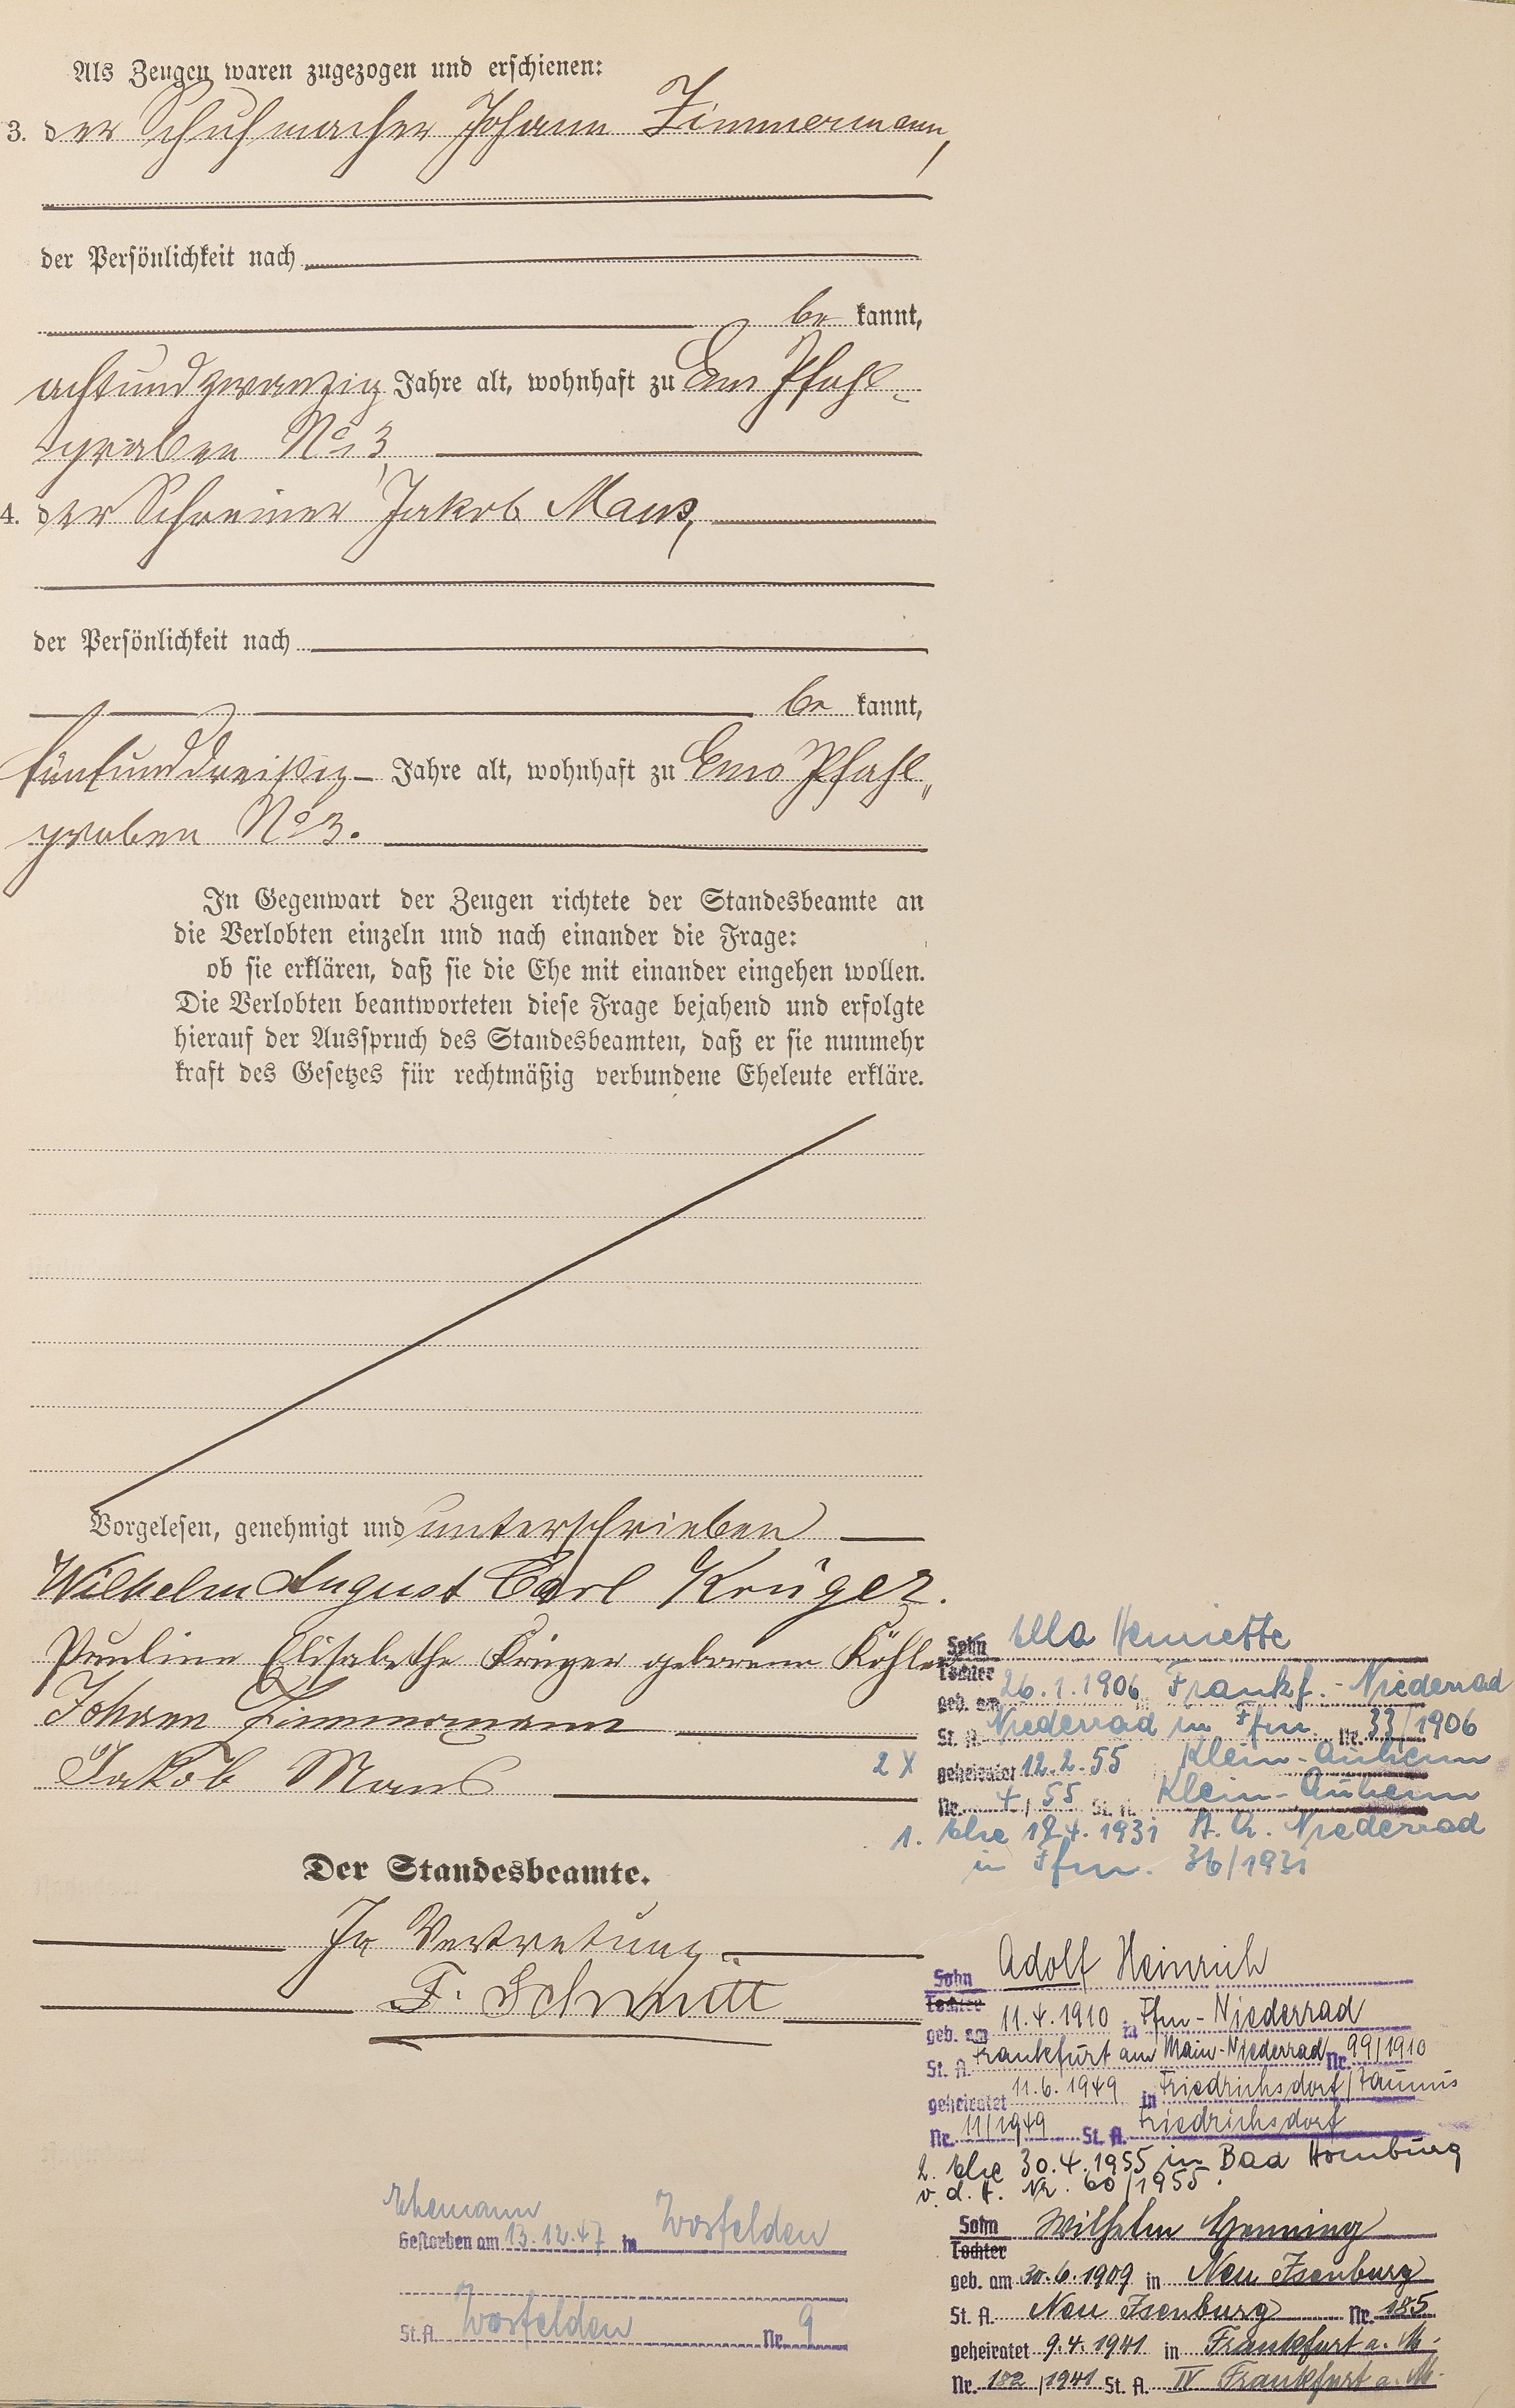 Als Zeugen waren zugezogen und erschienen:
3. der Schuhmacher Johann Zimmermann,
der Persönlichkeit nach
be kannt,
achtundzwanzig Jahre alt, wohnhaft zu Ems Pfahl-
graben No 3,
4. der Schreiner Jakob Maus,
der Persönlichkeit nach
be kannt,
fünfunddreißig Jahre alt, wohnhaft zu Ems Pfahl„
graben No 3.
In Gegenwart der Zeugen richtete der Standesbeamte an
die Verlobten einzeln und nach einander die Frage:
ob sie erklären, daß sie die Ehe mit einander eingehen wollen.
Die Verlobten beantworteten diese Frage bejahend und erfolgte
hierauf der Ausspruch des Standesbeamten, daß er sie nunmehr
kraft des Gesetzes für rechtmäßig verbundene Eheleute erkläre.
Vorgelesen, genehmigt und unterschrieben
Wilhelm August Carl Krüger.
Pauline Elisabethe Krüger geborene Köhler
Johann Zimmermann
Jakob Maus
Der Standesbeamte.
In Vertretung.
F. Schmitt
Ehemann
Gestorben am 13.12.47 in Worfelden
St. A. Worfelden Nr. 9
Sohn Ella Henriette
Tochter
geb. am 26.1.1906 in Frankf.-Niederrad
St. A. Niederrad in Ffm. Nr. 33/1906
2 X geheiratet 12.2.55 Klein-Auheim
Nr. 4/55 St. A. Klein-Auheim
1. Ehe 4.1931 St. A. Niederrad
in Ffm. 36/1931
Sohn Adolf Heinrich
Tochter
geb. am 11.4.1910 in Ffm-Niederrad
St. A. Frankfurt am Main-Niederrad Nr. 99/1910
geheiratet 11.6.1949 in Friedrichsdorf/Taunus
Nr. 11/1949 St. A. Friedrichsdorf
2. Ehe 30.4.1955 in Bad Homburg
v. d. H. Nr. 60/1955.
Sohn Wilhelm Henning
Tochter
geb. am 30.6.1909 in Neu Isenburg
St. A. Neu Isenburg Nr. 185
geheiratet 9.4.1941 in Frankfurt a. M.
Nr. 182/1941 St. A. IV Frankfurt a. M.